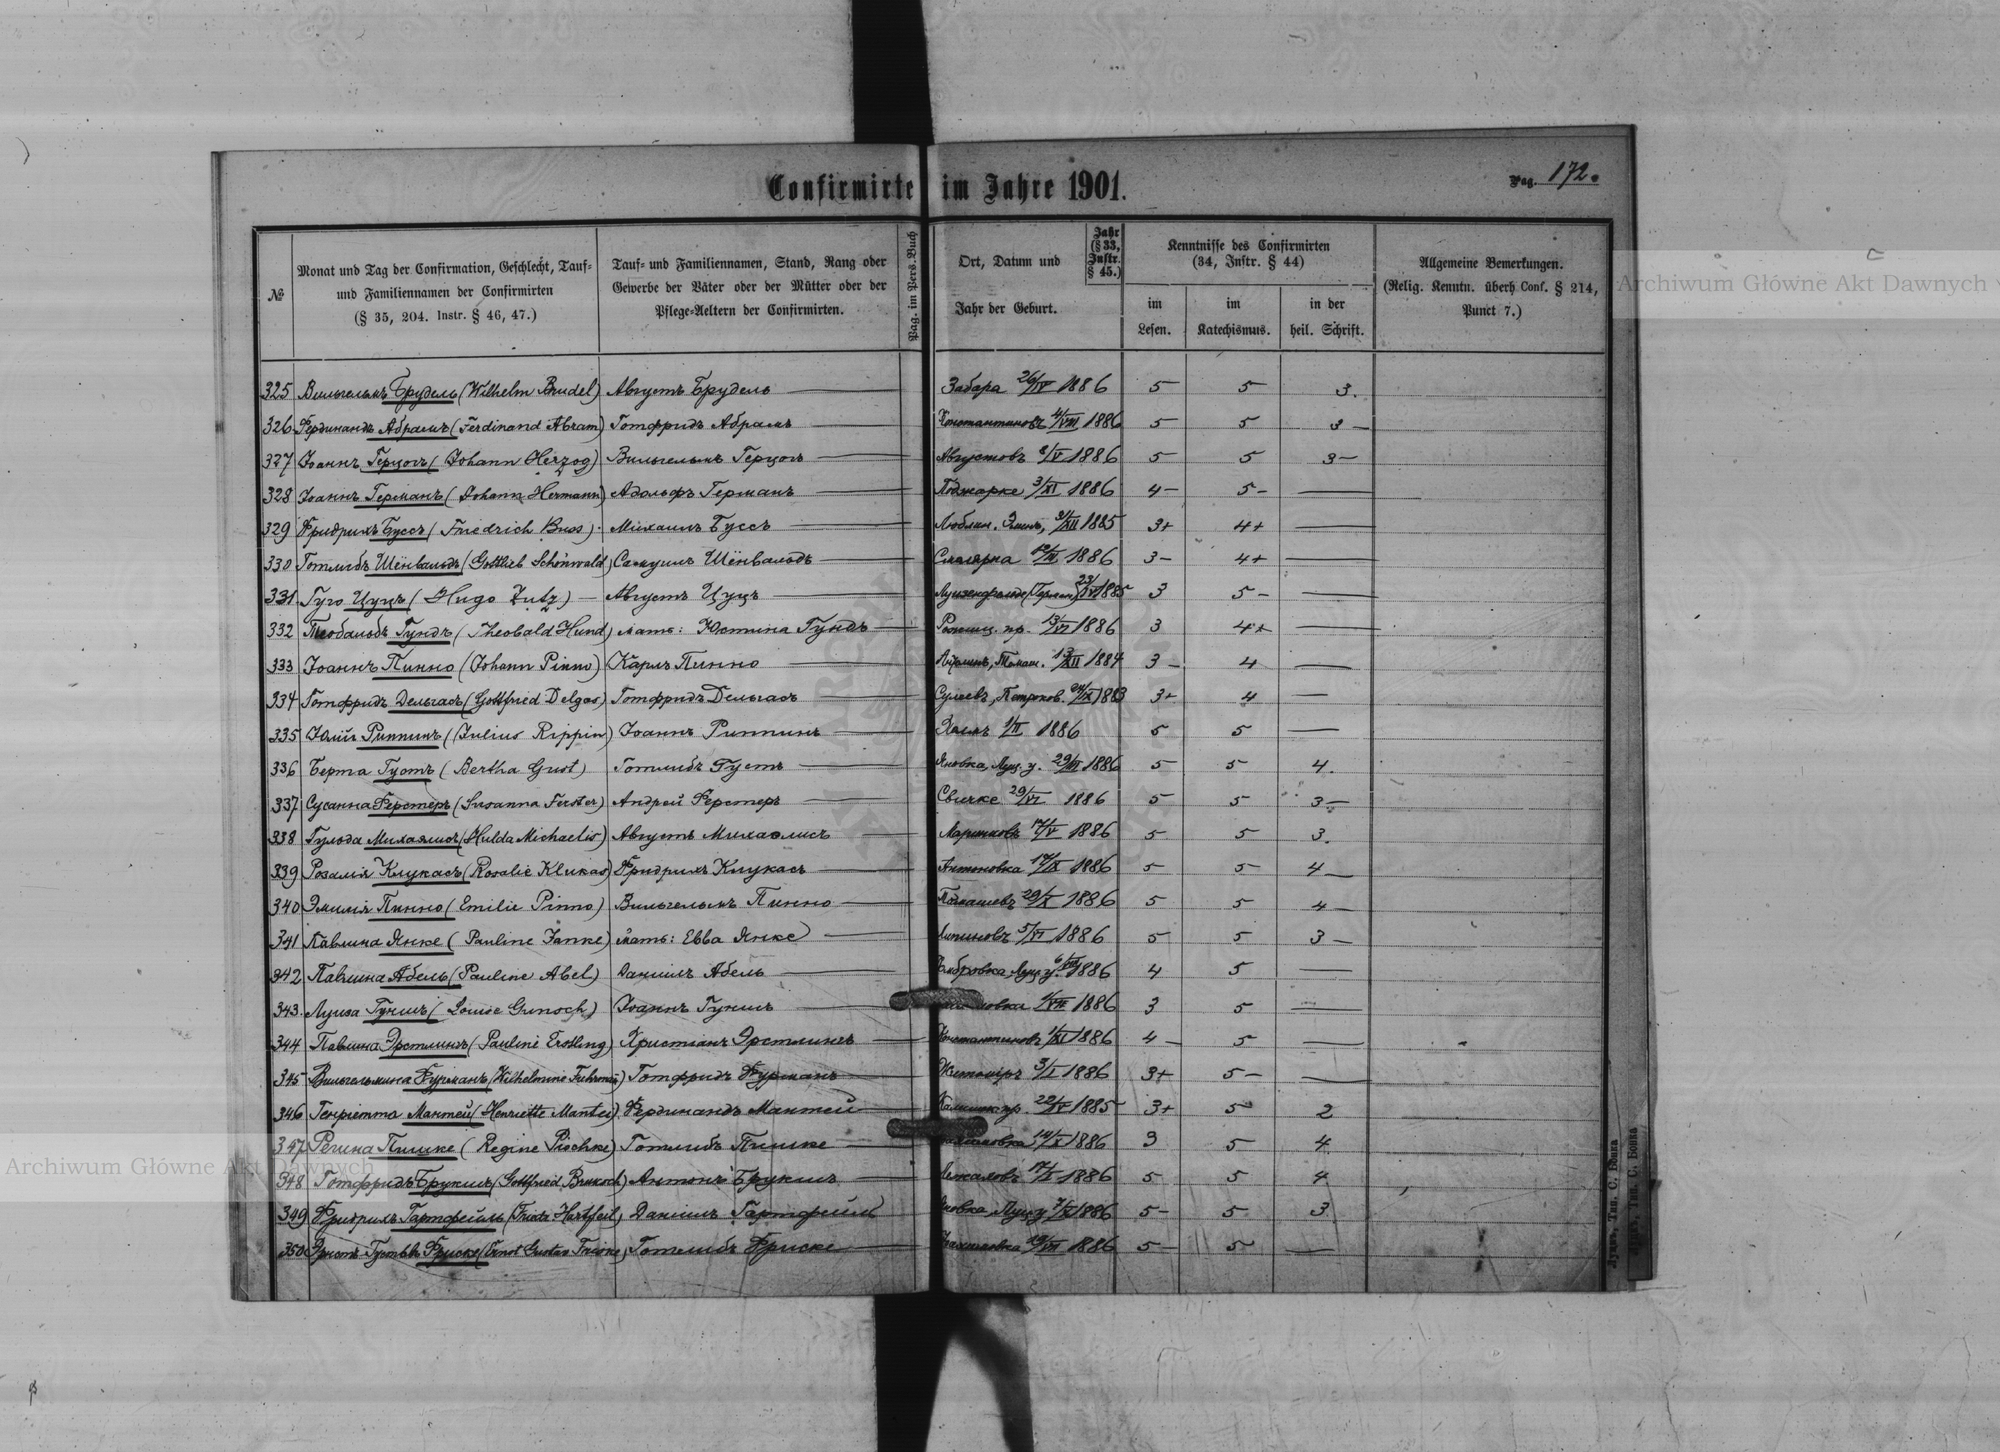 Confirmirte im Jahre 1901.
Pag. 172.
№
Monat und Tag der Confirmation, Geschlecht, Tauf-
und Familiennamen der Confirmirten
(§ 35, 204. Instr. § 46, 47.)
Tauf- und Familiennamen, Stand, Rang oder
Gewerbe der Väter oder der Mütter oder der
Pflege-Aeltern der Confirmirten.
Pag. im Pers.-Buch
Ort, Datum und
Jahr der Geburt.
Jahr
(§ 33,
Instr.
§ 45.)
Kenntnisse des Confirmirten
(34, Instr. § 44)
im
Lesen.
im
Katechismus.
in der
heil. Schrift.
Allgemeine Bemerkungen.
(Relig. Kenntn. überh Conf. § 214,
Punct 7.)
325 Вильгельмъ Брудель (Wilhelm Brudel) Августъ Брудель — Забара 26/IV 1886 5 5 3.
326 Фердинандъ Абрамъ (Ferdinand Abram) Готфридъ Абрамъ — 4/VIII 1886 5 5 3 —
327 Іоаннъ Герцогъ (Johann Herzog) Вильгельмъ Герцогъ — Августовъ /V 1886 5 5 3 —
328 Іоаннъ Германъ (Johann Hermann) Адольфъ Германъ — 3/XI 1886 4 — 5 — —
329 Фридрихъ Буссъ (Friedrich Buss) Михаилъ Буссъ — /XII 1885 3+ 4+ —
330 Готлибъ Шёнвальдъ (Gottlieb Schönwald) Самуилъ Шёнвальдъ — Смолярка 1886 3 — 4+ —
331 Гуго Цуцъ (Hugo Zutz) — Августъ Цуцъ — 1885 3 5 — —
332 Теобальдъ Гундъ (Theobald Hund) мать: Юстина Гундъ — 13/VI 1886 3 4+ —
333 Іоаннъ Пинно (Johann Pinno) Карлъ Пинно — 13/XII 1884 3 — 4 —
334 Готфридъ Дельгасъ (Gottfried Delgas) Готфридъ Дельгасъ — 1883 3+ 4 —
335 Юлій Риппинъ (Julius Rippin) Іоаннъ Риппинъ — 1/II 1886 5 5 —
336 Берта Густъ (Bertha Gust) Готлибъ Густъ — Яновка, Луц. у. 29/III 1886 5 5 4.
337 Сусанна Ферстеръ (Susanna Ferster) Андрей Ферстеръ — Свичке 29/VI 1886 5 5 3 —
338 Гульда Михаэлисъ (Hulda Michaelis) Августъ Михаэлисъ — 17/V 1886 5 5 3.
339 Розалія Клукасъ (Rosalie Klukas) Фридрихъ Клукасъ — Антоновка 17/IX 1886 5 5 4 —
340 Эмилія Пинно (Emilie Pinno) Вильгельмъ Пинно — 29/X 1886 5 5 4 —
341 Павлина Янке (Pauline Janke) мать: Евва Янке — 5/VI 1886 5 5 3 —
342 Павлина Абель (Pauline Abel) Даніилъ Абель — Луц. у. 1886 4 5 —
343 Луиза Гуншъ (Louise Gunsch) Іоаннъ Гуншъ — /VII 1886 3 5 —
344 Павлина Эрстлингъ (Pauline Erstling) Христіанъ Эрстлингъ — 1/XI 1886 4 — 5 —
345 Вильгельмина Фурманъ (Wilhelmine Fuhrman) Готфридъ Фурманъ — Житоміръ 3/I 1886 3+ 5 — —
346 Генріетта Мантей (Henriette Mantei) Фердинандъ Мантей — 22/IV 1885 3+ 5 2
347 Регина Пишке (Regine Pischke) Готлибъ Пишке — 14/X 1886 3 5 4
348 Готфридъ Брукшъ (Gottfried Bruksch) Антонъ Брукшъ — 17/I 1886 5 5 4
349 Фридрихъ Гартфейль Даніилъ Гартфейль 1886 5 — 5 3
350 Эрнстъ Густавъ Фриске (Ernst Gustav Friske) Готлибъ Фриске — 19/VII 1886 5 — 5 —
Луцкъ, Тип. С. Бокка
Archiwum Główne Akt Dawnych
Archiwum Główne Akt Dawnych